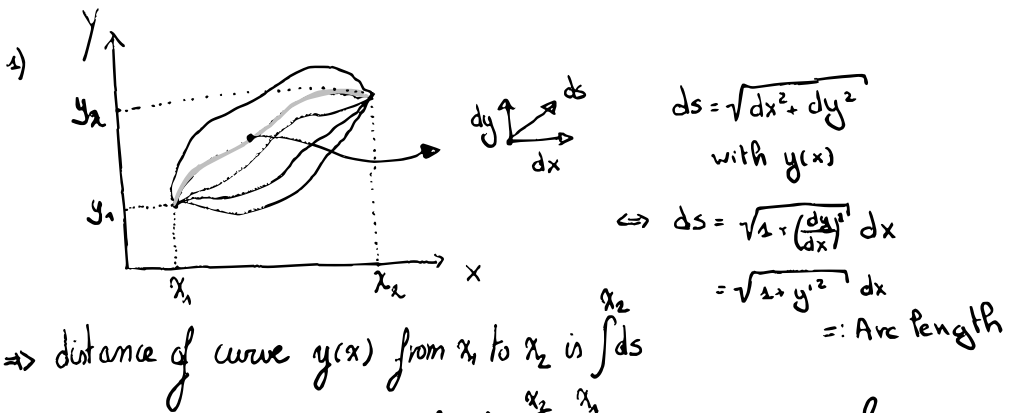 1)
y
y₂
y₁
x₁
x₂
x
dy
ds
dx
ds = √(dx² + dy²)
with y(x)
⇔ ds = √(1 + (dy/dx)²) dx
= √(1 + y'²) dx
=: Arc length
⇒ distance of curve y(x) from x₁ to x₂ is ∫_{x₁}^{x₂} ds
x₂